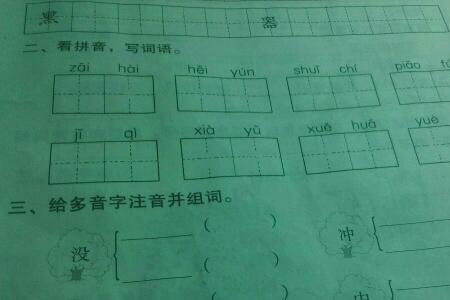 黑 器
二、看拼音，写词语。
zāi hài hēi yún shuǐ chí piāo
jī qì xià yǔ xuě huā yuè
三、给多音字注音并组词。
没 { ( ) 冲 {
( )